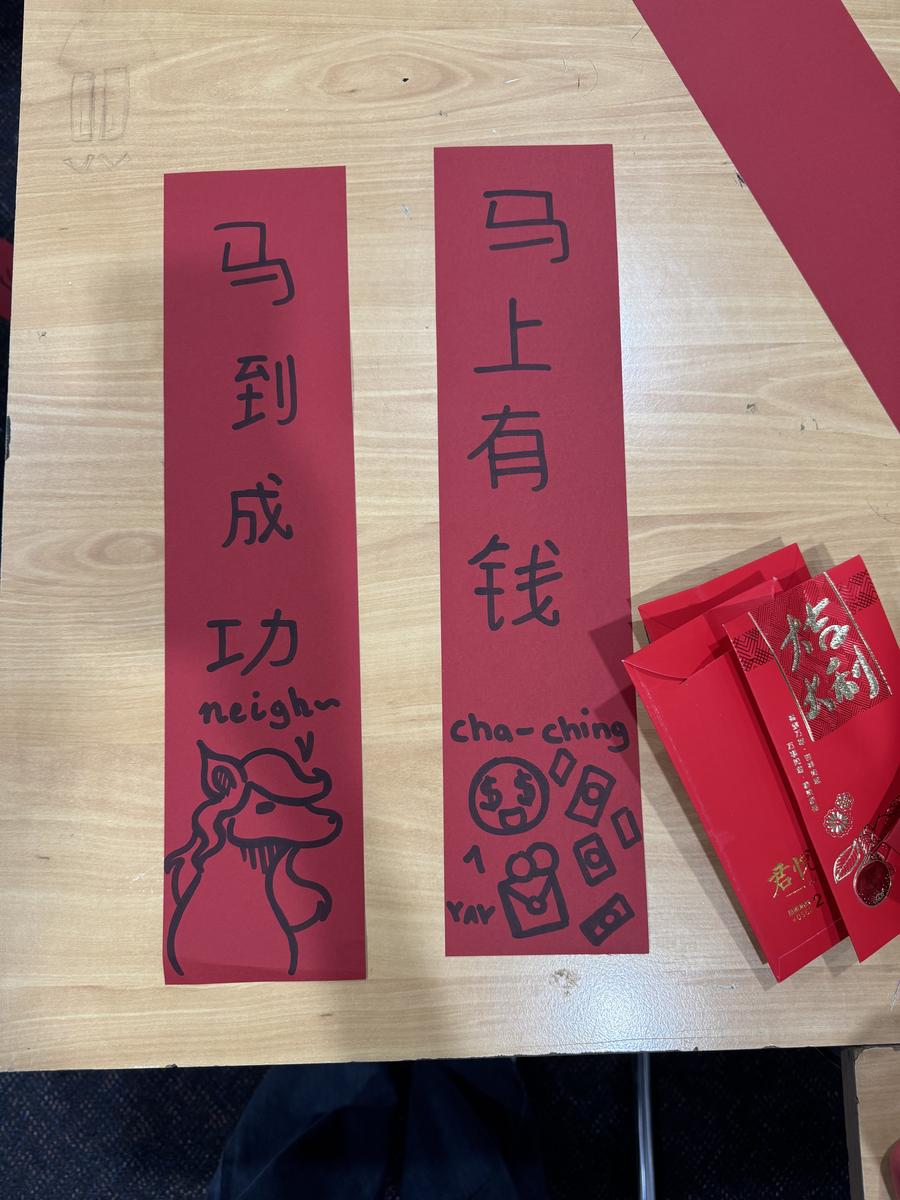 马到成功
neigh~
马上有钱
cha-ching
$ $
YAY
大吉
大利